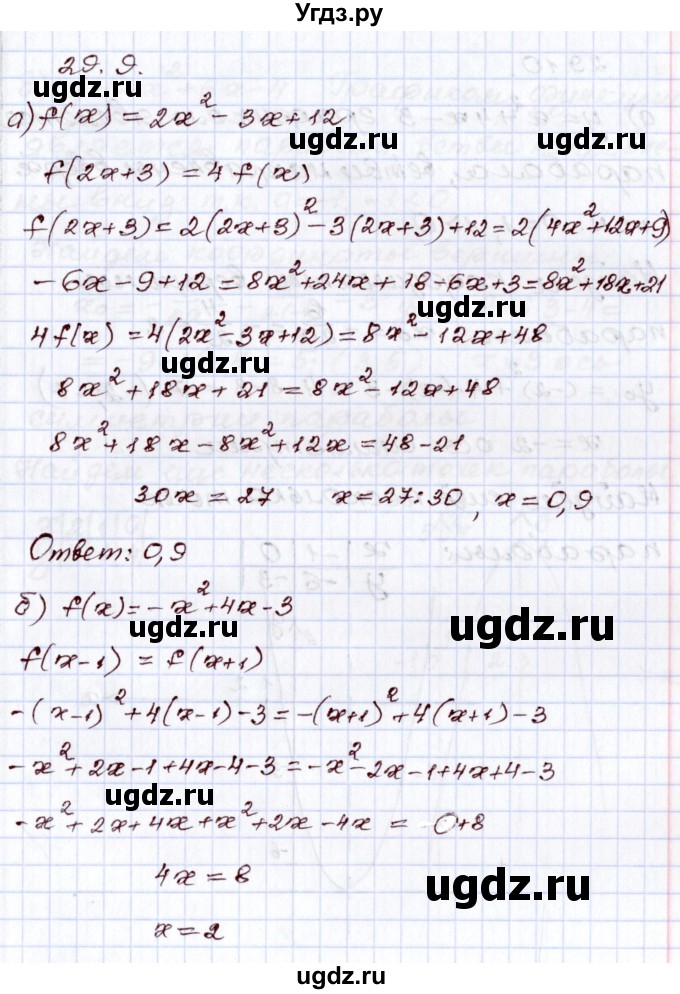 Угдз.ру
29.9.
ugdz.ru
ugdz.ru
а) f(x) = 2x² - 3x + 12
ugdz.ru
f(2x+3) = 4 f(x)
f(2x+3) = 2(2x+3)² - 3(2x+3) + 12 = 2(4x² + 12x + 9)
- 6x - 9 + 12 = 8x² + 24x + 18 - 6x + 3 = 8x² + 18x + 21
4 f(x) = 4(2x² - 3x + 12) = 8x² - 12x + 48
ugdz.ru
ugdz.ru
8x² + 18x + 21 = 8x² - 12x + 48
8x² + 18x - 8x² + 12x = 48 - 21
30x = 27 x = 27 : 30, x = 0,9
Ответ: 0,9
б) f(x) = - x² + 4x - 3
ugdz.ru
ugdz.ru
f(x-1) = f(x+1)
-(x-1)² + 4(x-1) - 3 = -(x+1)² + 4(x+1) - 3
-x² + 2x - 1 + 4x - 4 - 3 = -x² - 2x - 1 + 4x + 4 - 3
ugdz.ru
-x² + 2x + 4x + x² + 2x - 4x = 0 + 8
4x = 8
ugdz.ru
x = 2
ugdz.ru